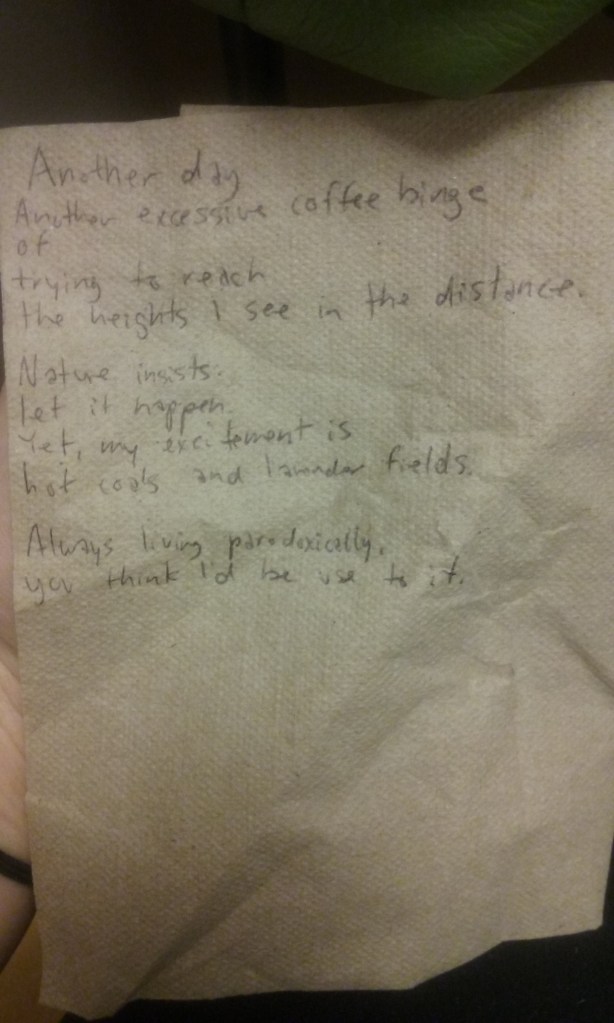 Another day
Another excessive coffee binge
of
trying to reach
the heights I see in the distance.
Nature insists.
Let it happen.
Yet, my excitement is
hot coals and lavender fields.
Always living paradoxically,
you think I'd be use to it.